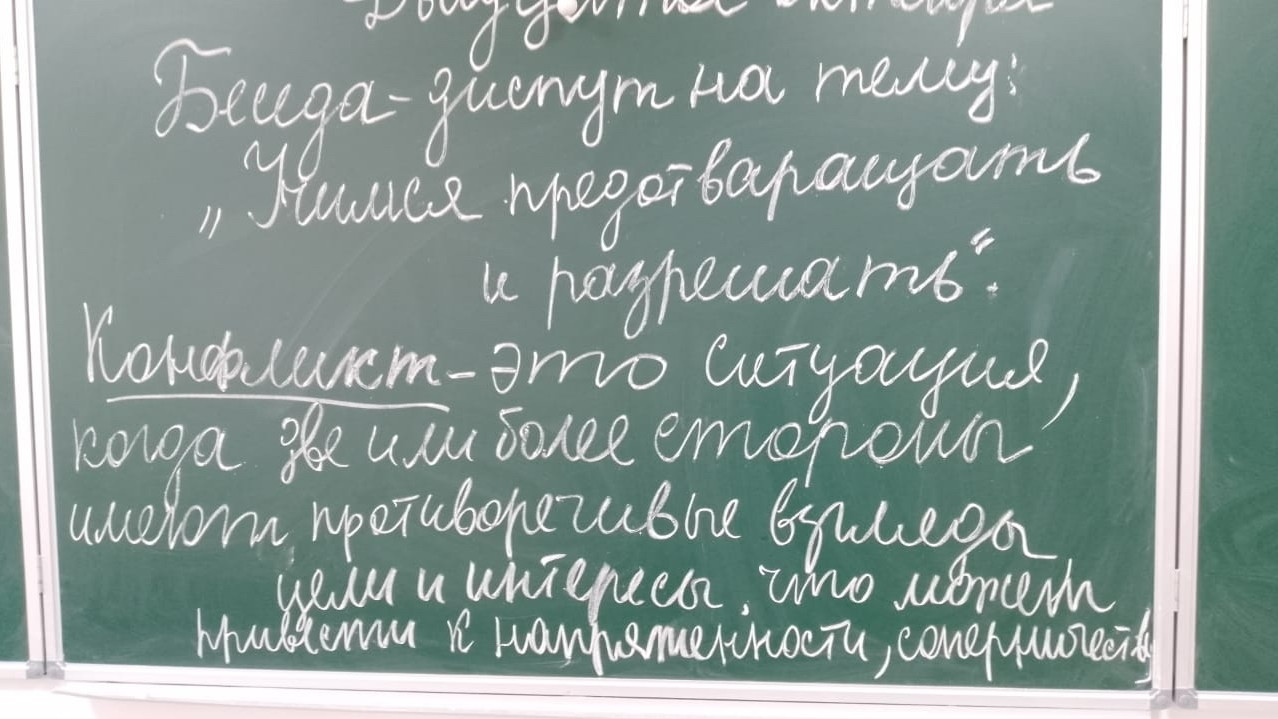 октября
Беседа-диспут на тему:
„Учимся предотваращать
и разрешать".
Конфликт - это ситуация,
когда две или более стороны
имеют противоречивые взгляды
цели и интересы, что может
привести к напряженности, соперничеству